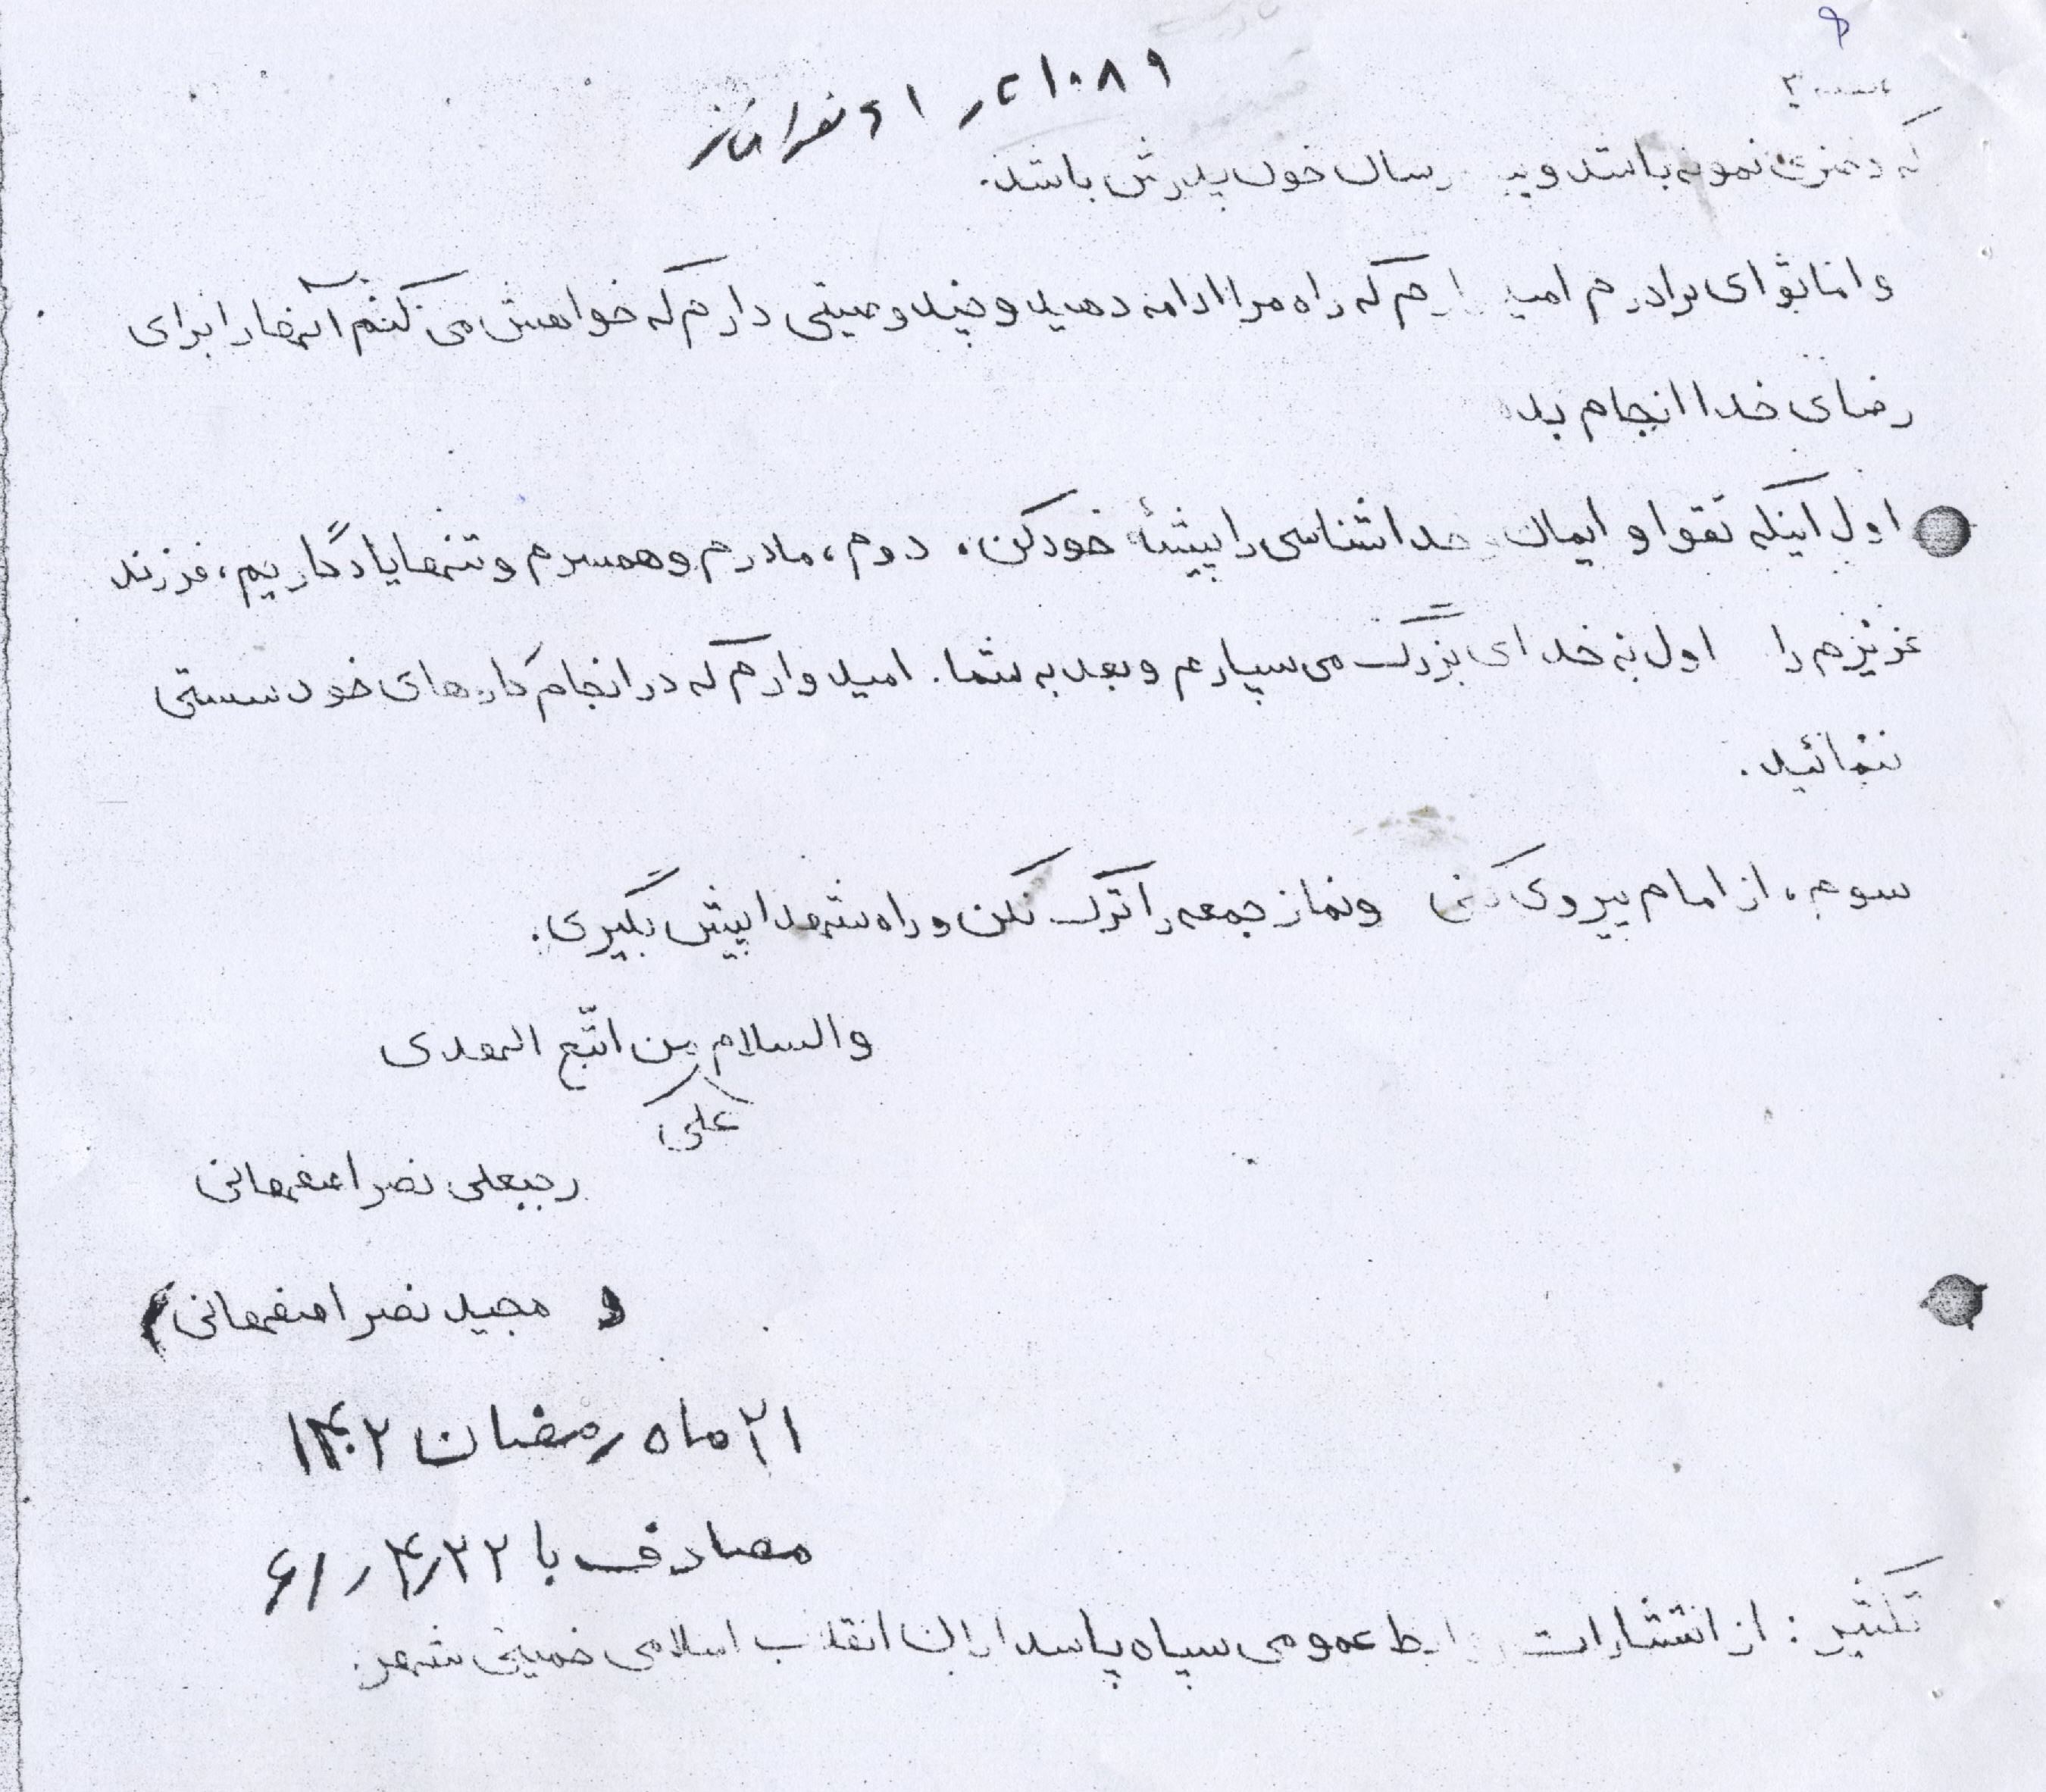 که دختری نمونه باشد و رسان خون پدرش باشد.
و اما تو ای برادرم راه مرا ادامه دهید و چند وصیتی دارم که خواهش می کنم آنها را برای
رضای خدا انجام بده
اول اینکه تقوا و ایمان و خداشناسی را پیشهٔ خود کن. دوم، مادرم و همسرم و تنها یادگاریم، فرزند
عزیزم را اول به خدای بزرگ می سپارم و بعد به شما. امیدوارم که در انجام کارهای خود سستی
ننمائید.
سوم، از امام پیروی کنی و نماز جمعه را ترک نکن و راه شهدا پیش بگیری.
والسلام من اتّبع الهدی
علی
رجبعلی نصر اصفهانی
مجید نصر اصفهانی)
۲۱ ماه رمضان ۱۴۰۲
مصادف با ۶۱/۴/۲۲
تکثیر: از انتشارات روابط عمومی سپاه پاسداران انقلاب اسلامی خمینی شهر.